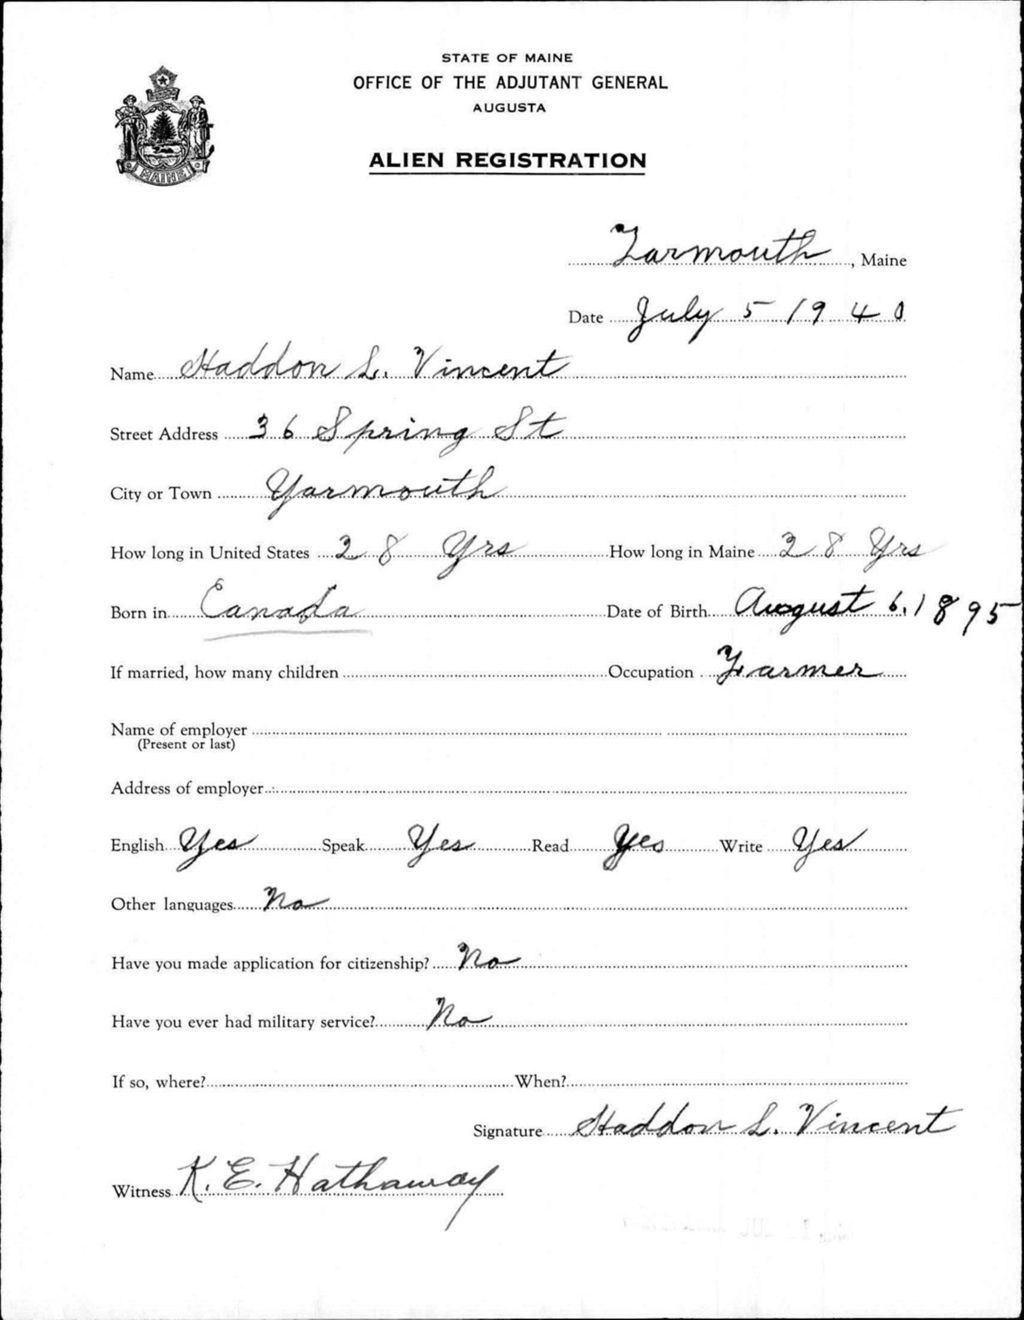 STATE OF MAINE
OFFICE OF THE ADJUTANT GENERAL
AUGUSTA
ALIEN REGISTRATION
MAINE
Yarmouth, Maine
Date July 5 1940
Name Haddon L. Vincent
Street Address 36 Spring St
City or Town Yarmouth
How long in United States 28 Yrs How long in Maine 28 Yrs
Born in Canada Date of Birth August 6, 1895
If married, how many children Occupation Farmer
Name of employer
(Present or last)
Address of employer
English Yes Speak Yes Read Yes Write Yes
Other languages No
Have you made application for citizenship? No
Have you ever had military service? No
If so, where? When?
Signature Haddon L. Vincent
Witness K. E. Hathaway